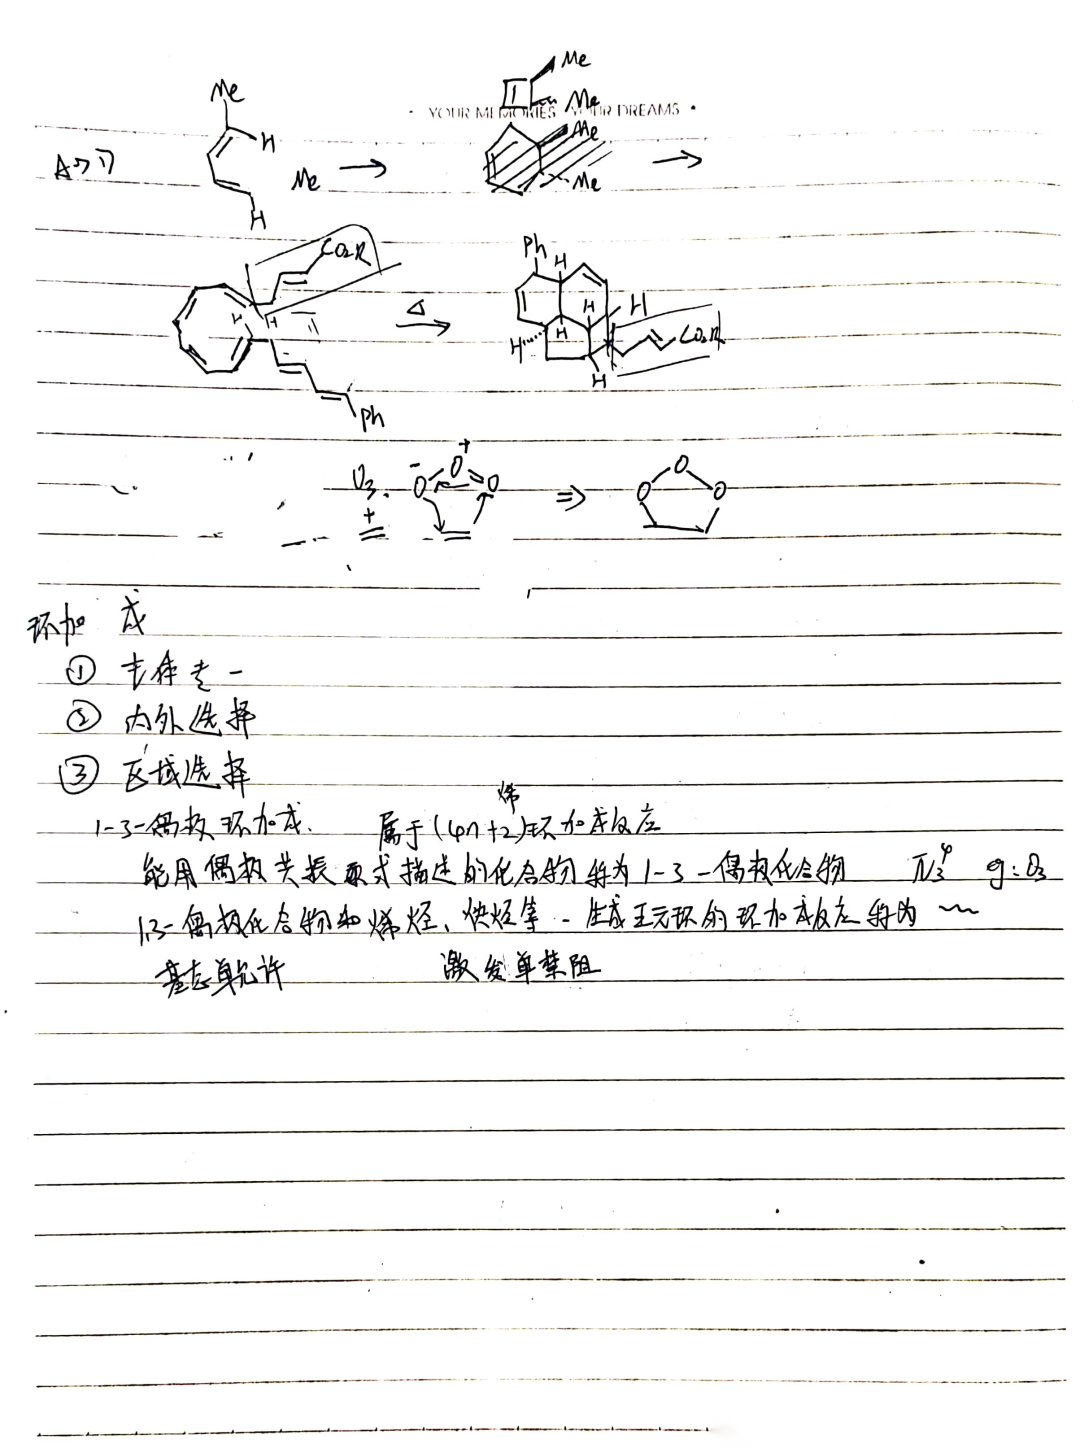 Me
Me
• YOUR MEMORIES YOUR DREAMS •
Me
Me
H
Me
Me
H
CO₂R
H H
Ph
Δ
Ph
H
H
H
H
H
CO₂R
H
O₃
+
- O O + O
⇒
O O O
环加成
① 立体专一
② 内外选择
③ 区域选择
烯
1-3-偶极环加成. 属于(4n+2)环加成反应
能用偶极共振式描述的化合物称为1-3-偶极化合物 g: O₃
1,3-偶极化合物和烯烃、炔烃等 - 生成五元环的环加成反应称为 ~~
基态单允许 激发单禁阻